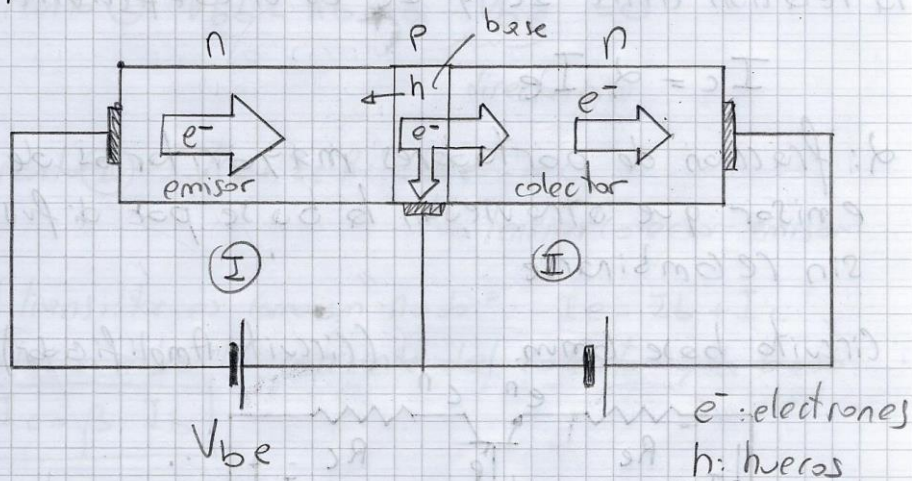 base
n p n
h
e⁻ e⁻ e⁻
emisor colector
I II
Vbe
e⁻: electrones
h: huecos